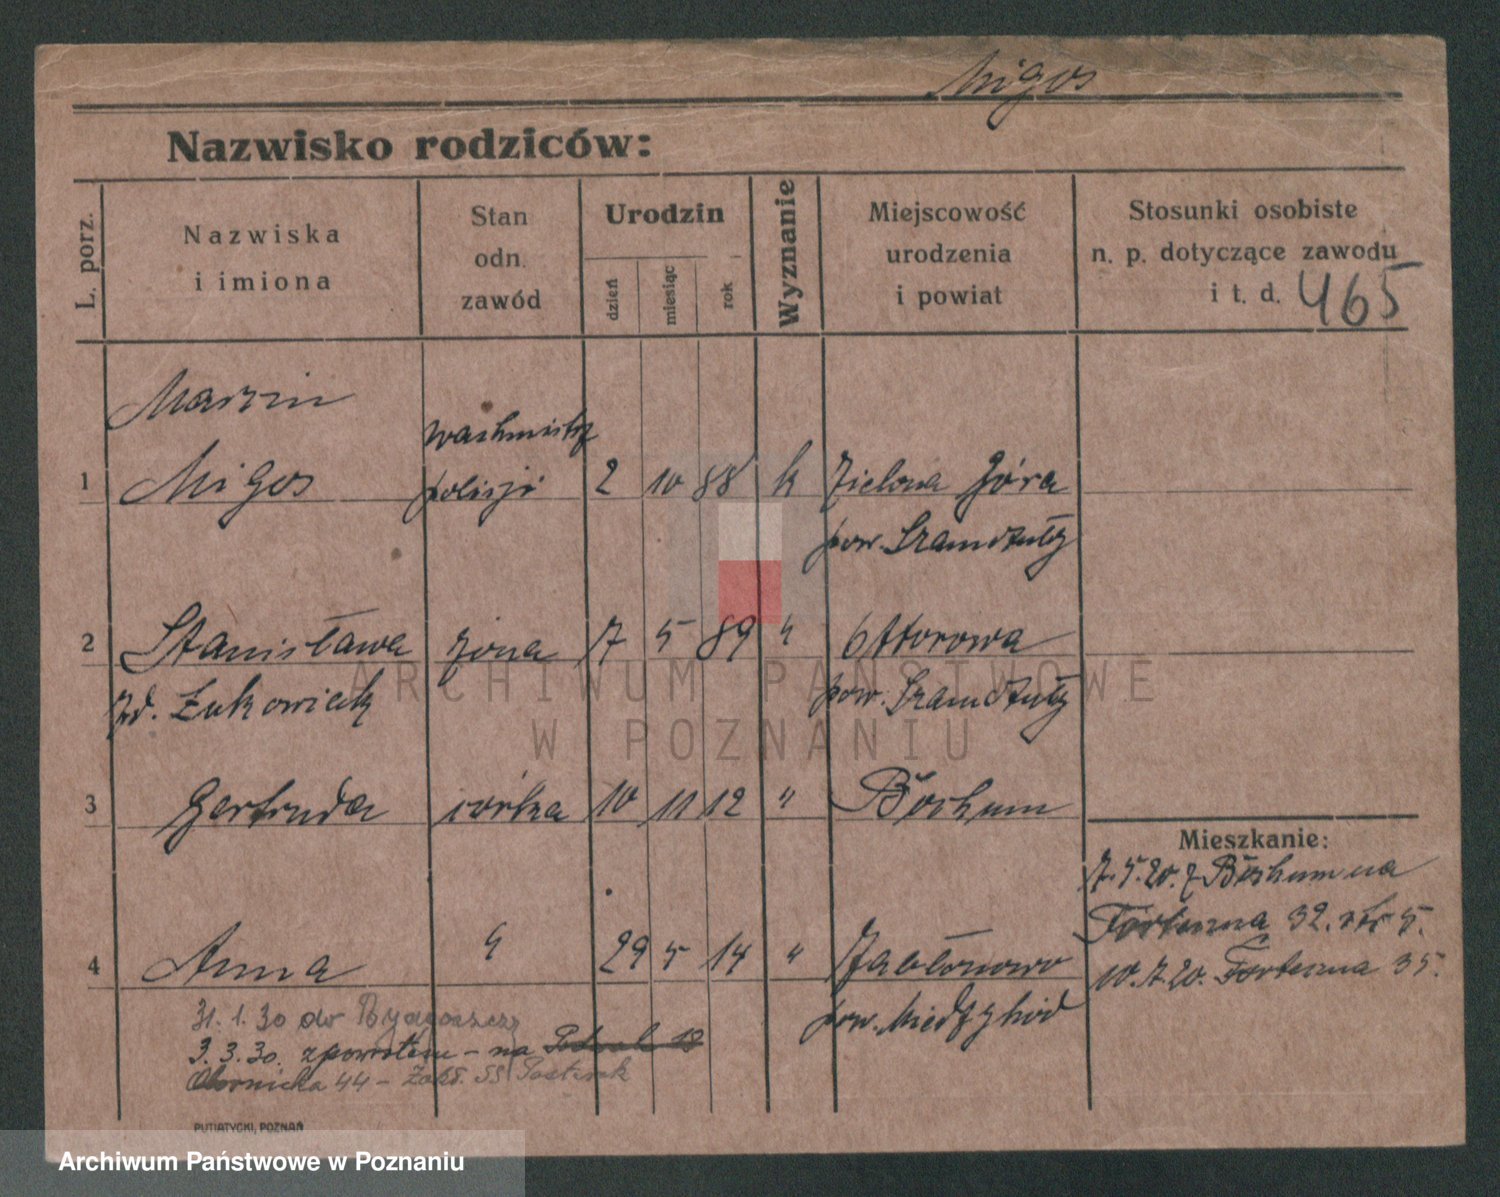 Migos
Nazwisko rodziców:
L. porz.
Nazwiska
i imiona
Stan
odn.
zawód
Urodzin
dzień
miesiąc
rok
Wyznanie
Miejscowość
urodzenia
i powiat
Stosunki osobiste
n. p. dotyczące zawodu
i t. d. 465
Marzin
wachmistrz
1 Migos policji 2 10 88 k Zielona Góra
pow. Szamotuły
2 Stanisława żona 7 5 89 " Ottorowa
zd. Żukowiak pow. Szamotuły
3 Gertruda córka 10 11 12 " Bochum
Mieszkanie:
7.5.20. z Bochum na
Forteczna 32. 5.
4 Anna " 29 5 14 " Jabłonowo
10.7.20. Forteczna 35.
pow. Międzychód
31.1.30 do Bydgoszczy
3.3.30. z powrotem - na
Obornicka 44 - SS
PUTIATYCKI, POZNAŃ
ARCHIWUM PAŃSTWOWE
W POZNANIU
Archiwum Państwowe w Poznaniu